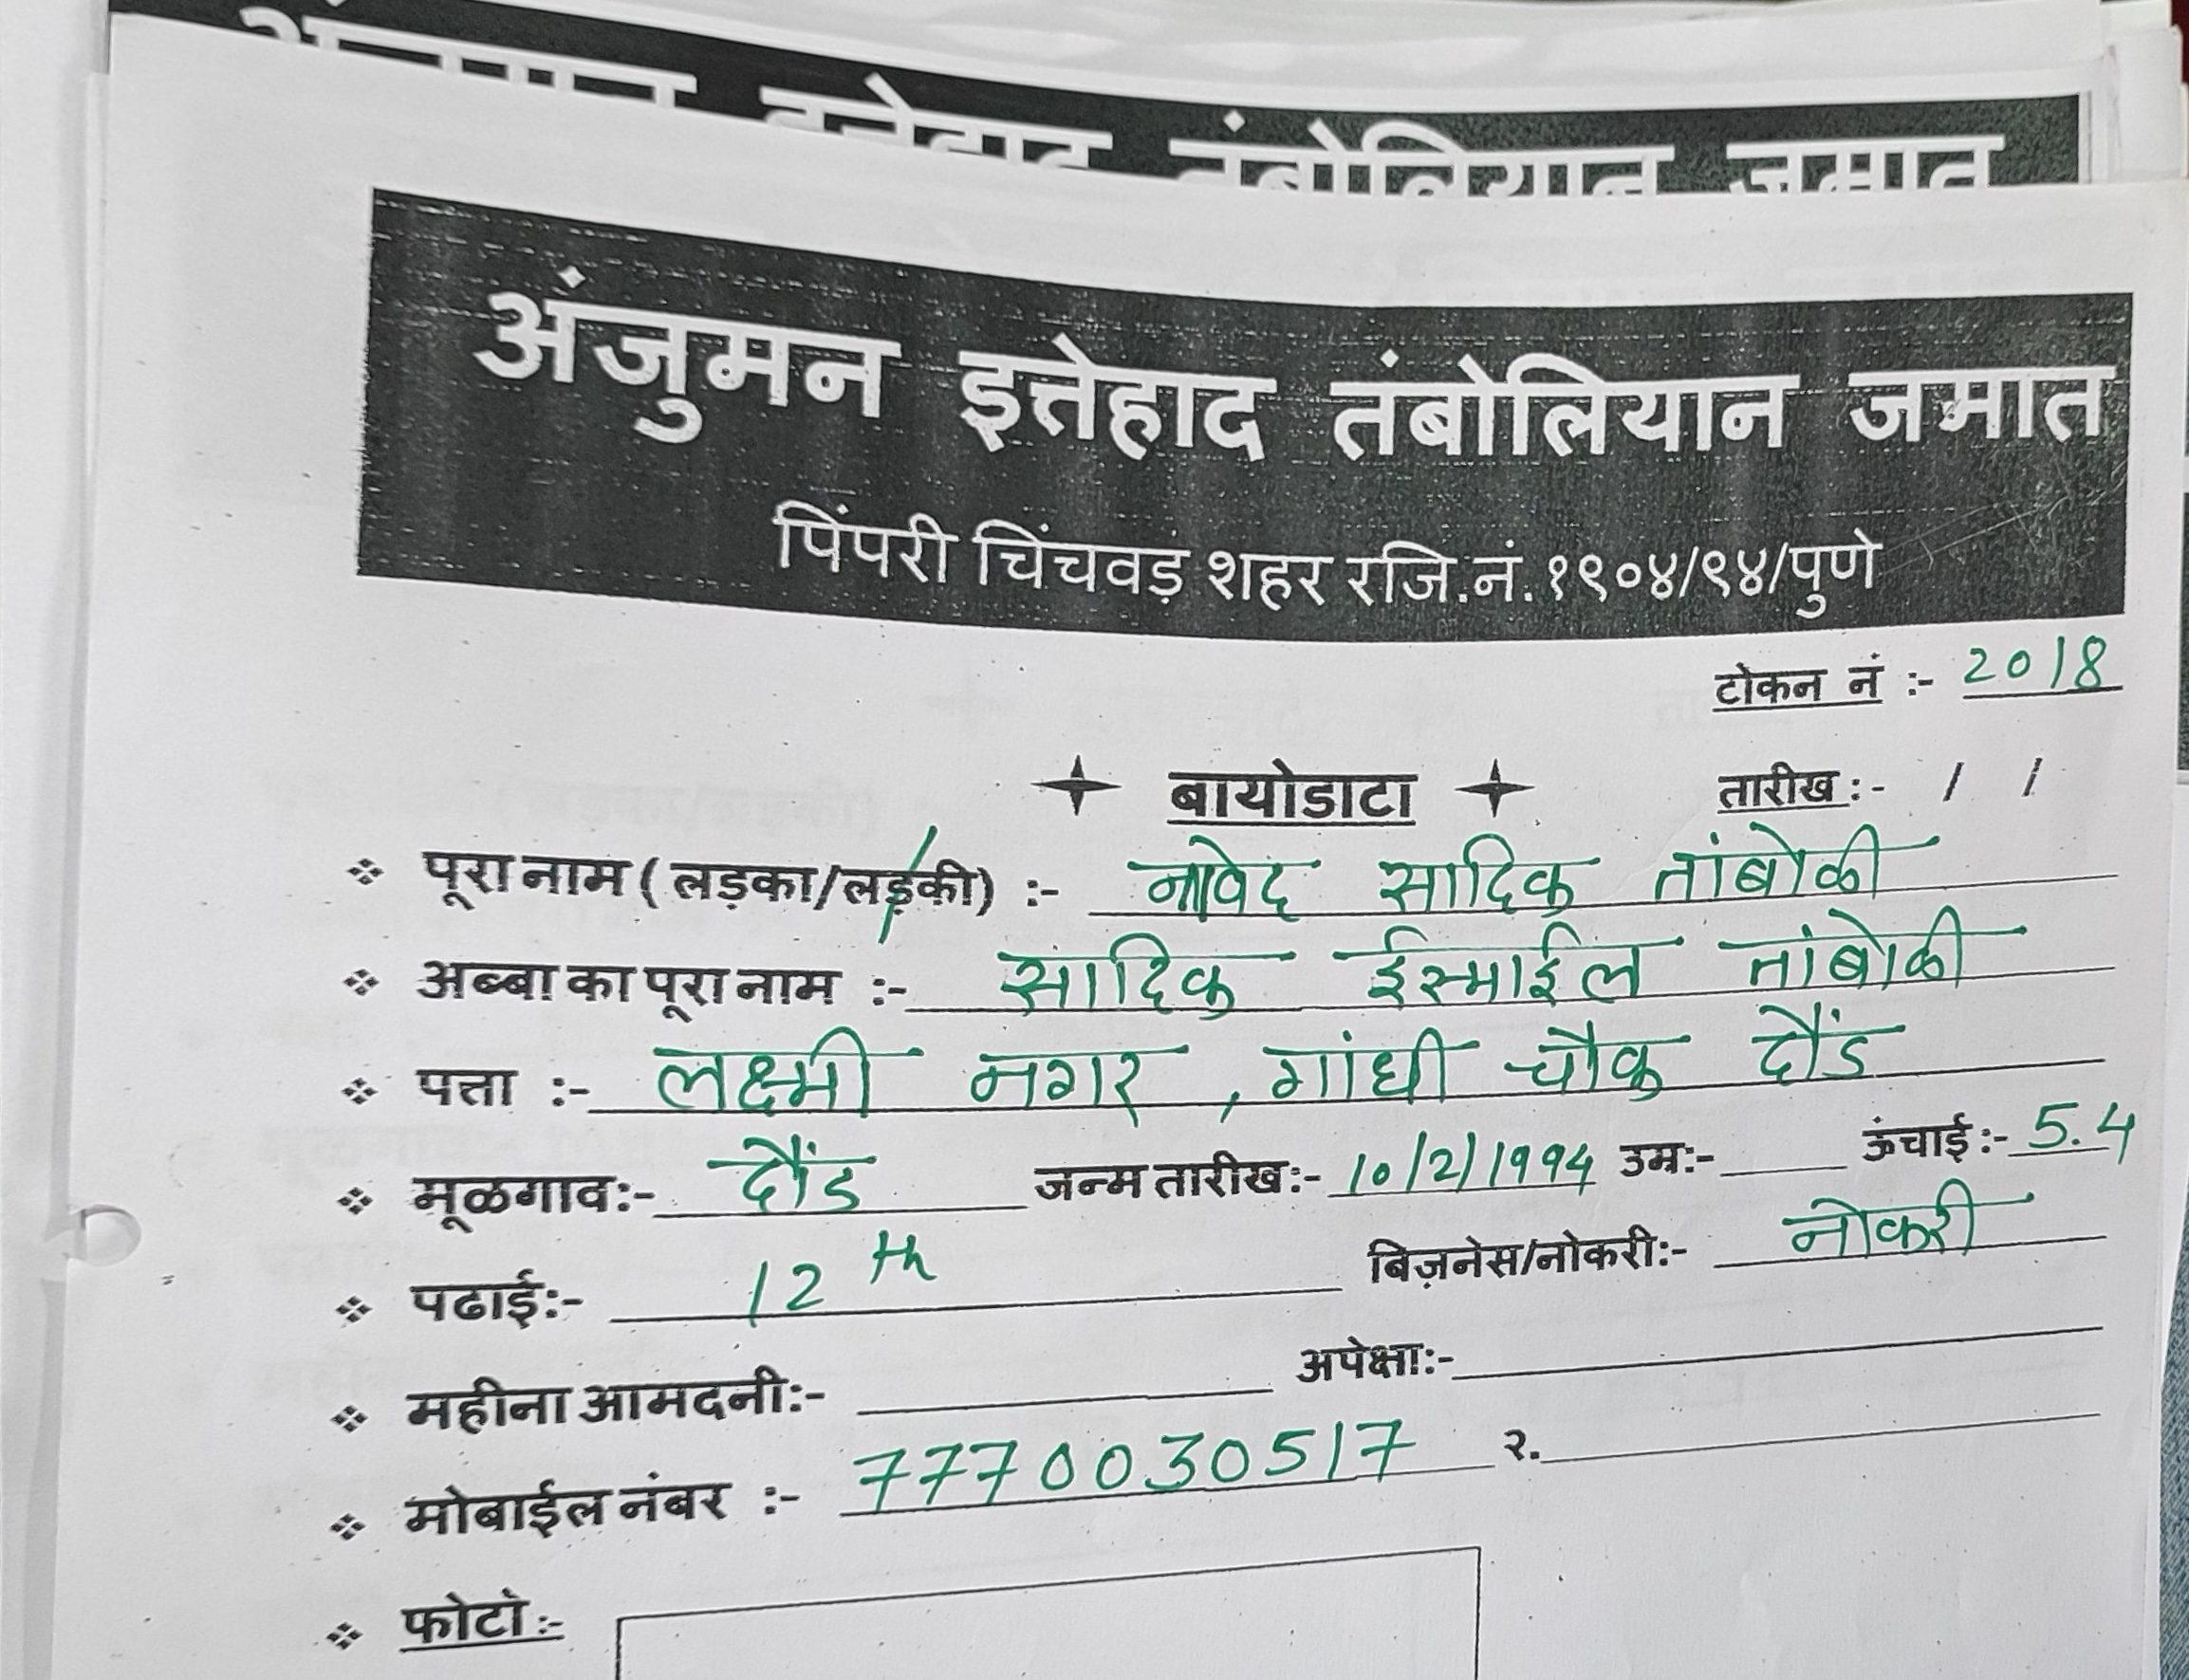 अंजुमन इत्तेहाद तंबोलियान जमात
अंजुमन इत्तेहाद तंबोलियान जमात
पिंपरी चिंचवड़ शहर रजि.नं.१९०४/९४/पुणे
टोकन नं :- 2018
बायोडाटा
तारीख :- / /
पूरा नाम ( लड़का/लड़की) :- नावेद सादिक तांबोळी
अब्बा का पूरा नाम :- सादिक ईस्माईल तांबोळी
पत्ता :- लक्ष्मी नगर , गांधी चौक दौंड
मूळगाव:- दौंड जन्म तारीख:- 10/2/1994 उम्र:- ऊंचाई:- 5.4
पढाई:- 12 th बिज़नेस/नोकरी:- नोकरी
महीना आमदनी:- अपेक्षा:-
मोबाईल नंबर :- 7770030517 २.
फोटो :-